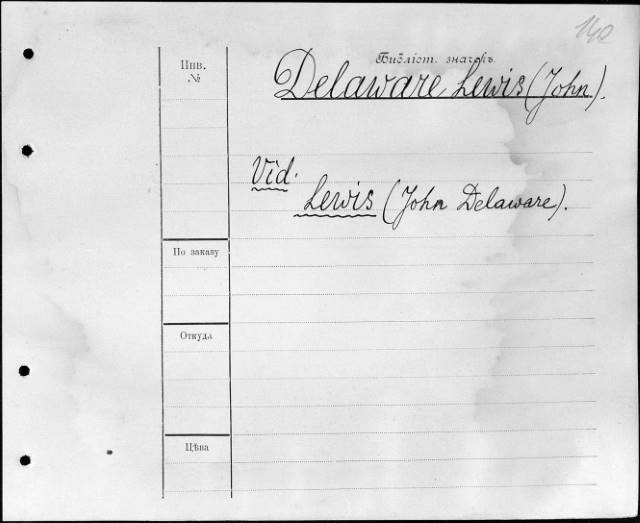 140
Библіот. значекъ.
Инв.
№
Delaware Lewis (John).
Vid.
Lewis (John Delaware).
По заказу
Откуда
Цѣна